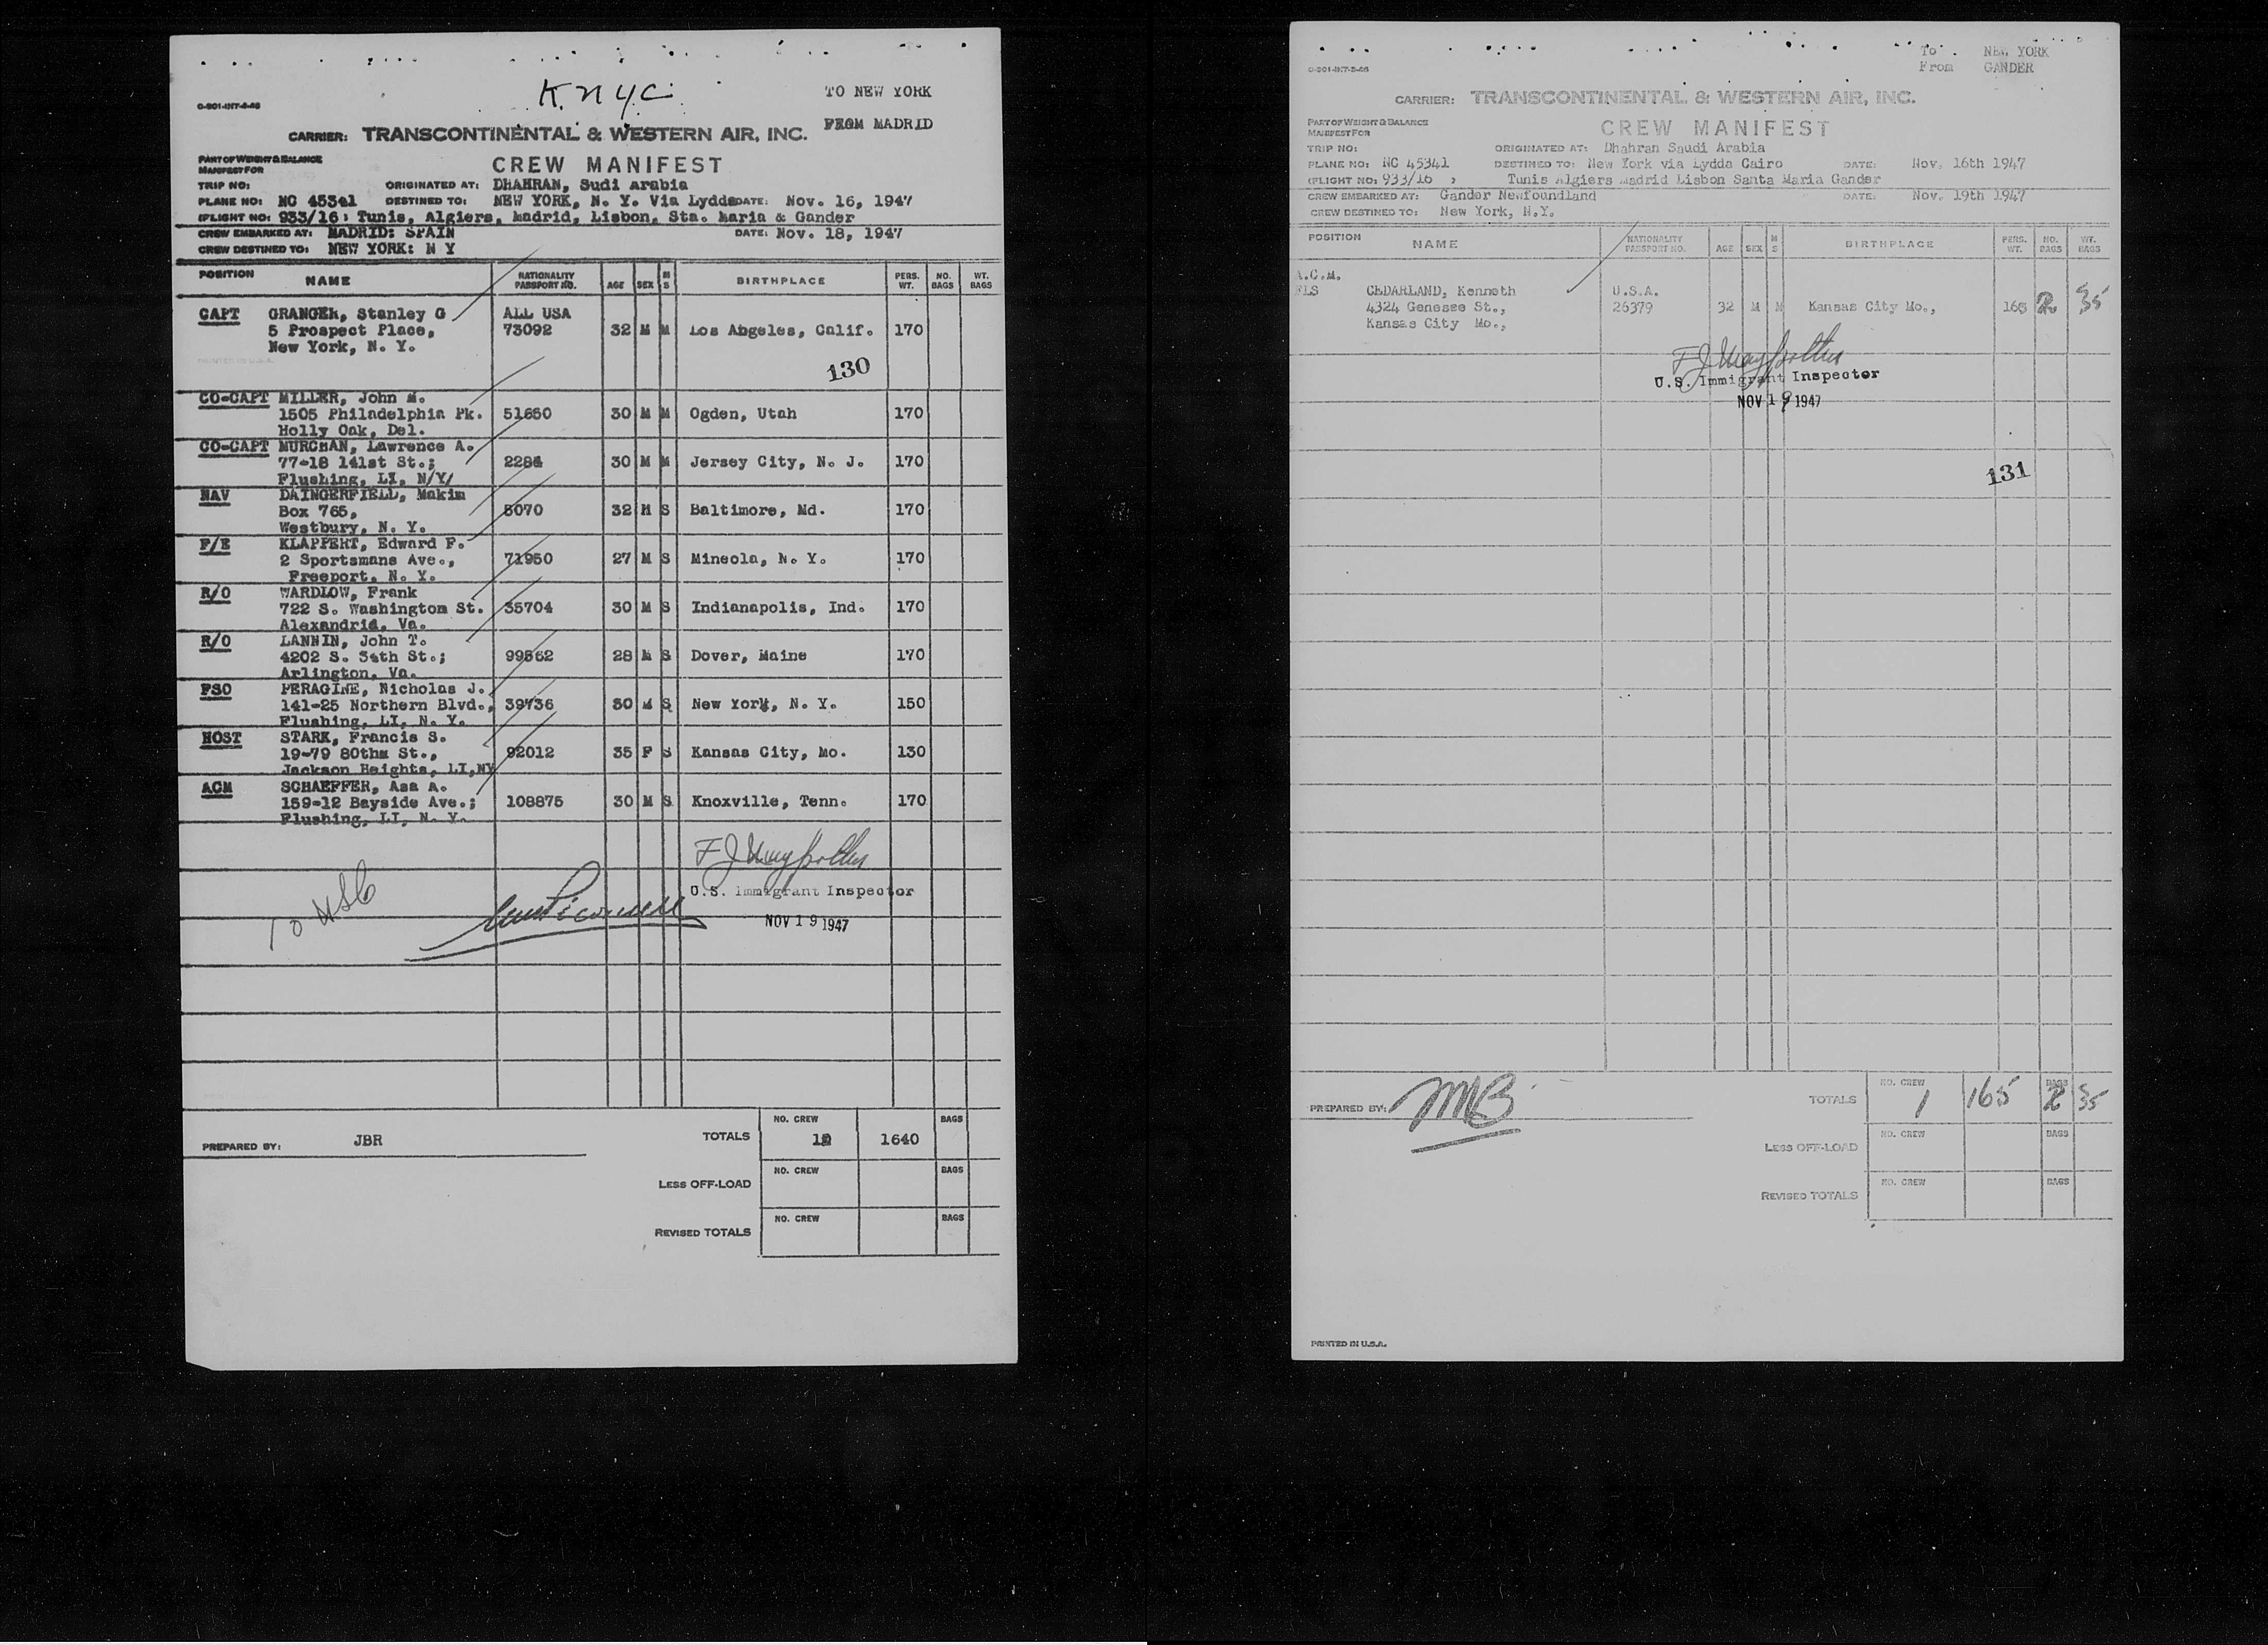 K. NYC.
TO NEW YORK
FROM MADRID
O-901-INT-4-46
CARRIER: TRANSCONTINENTAL & WESTERN AIR, INC.
PART OF WEIGHT & BALANCE
MANIFEST FOR
CREW MANIFEST
TRIP NO: ORIGINATED AT: DHAHRAN, Sudi Arabia
PLANE NO: NC 45341 DESTINED TO: NEW YORK, N. Y. Via Lydda DATE: Nov. 16, 1947
(FLIGHT NO: 933/16) Tunis, Algiers, Madrid, Lisbon, Sta. Maria & Gander
CREW EMBARKED AT: MADRID: SPAIN DATE: Nov. 18, 1947
CREW DESTINED TO: NEW YORK: N Y
POSITION NAME NATIONALITY PASSPORT NO. AGE SEX M S BIRTHPLACE PERS. WT. NO. BAGS WT. BAGS
CAPT GRANGER, Stanley G ALL USA
5 Prospect Place, 73092 32 M M Los Abgeles, Calif. 170
New York, N. Y.
PRINTED IN U.S.A.
130
CO-CAPT MILLER, John M.
1505 Philadelphia Pk. 51650 30 M M Ogden, Utah 170
Holly Oak, Del.
CO-CAPT MURCHAN, Lawrence A.
77-18 141st St.; 2284 30 M M Jersey City, N. J. 170
Flushing, LI, N/Y/
NAV DAINGERFIELD, Makim
Box 765, 5070 32 M S Baltimore, Md. 170
Westbury, N. Y.
F/E KLAPPERT, Edward F.
2 Sportsmans Ave., 71950 27 M S Mineola, N. Y. 170
Freeport, N. Y.
R/O WARDLOW, Frank
722 S. Washington St. 35704 30 M S Indianapolis, Ind. 170
Alexandrid, Va.
R/O LANNIN, John T.
4202 S. 34th St.; 99562 28 M S Dover, Maine 170
Arlington, Va.
FSO PERAGINE, Nicholas J.
141-25 Northern Blvd., 39736 30 M S New York, N. Y. 150
Flushing, LI, N. Y.
HOST STARK, Francis S.
19-79 80thm St., 92012 35 F S Kansas City, Mo. 130
Jackson Heights, LI,NY
ACM SCHAEFFER, Asa A.
159-12 Bayside Ave.; 108875 30 M S Knoxville, Tenn. 170
Flushing, LI, N. Y.
U.S. Immigrant Inspector
NOV 19 1947
10 USC
PREPARED BY: JBR TOTALS NO. CREW 10 1640 BAGS
LESS OFF-LOAD NO. CREW BAGS
REVISED TOTALS NO. CREW BAGS
To NEW YORK
From GANDER
O-901-INT-5-46
CARRIER: TRANSCONTINENTAL & WESTERN AIR, INC.
PART OF WEIGHT & BALANCE
MANIFEST FOR
CREW MANIFEST
TRIP NO: ORIGINATED AT: Dhahran Saudi Arabia
PLANE NO: NC 45341 DESTINED TO: New York via Lydda Cairo DATE: Nov. 16th 1947
(FLIGHT NO: 933/16 ) Tunis Algiers Madrid Lisbon Santa Maria Gander
CREW EMBARKED AT: Gander Newfoundland DATE: Nov. 19th 1947
CREW DESTINED TO: New York, N.Y.
POSITION NAME NATIONALITY PASSPORT NO. AGE SEX M S BIRTHPLACE PERS. WT. NO. BAGS WT. BAGS
A.C.M.
FLS CEDARLAND, Kenneth U.S.A.
4324 Genesse St., 26379 32 M M Kansas City Mo., 165 2 35
Kansas City Mo.,
U.S. Immigrant Inspector
NOV 19 1947
131
PREPARED BY: MB TOTALS NO. CREW 1 165 BAGS 2 35
LESS OFF-LOAD NO. CREW BAGS
REVISED TOTALS NO. CREW BAGS
PRINTED IN U.S.A.